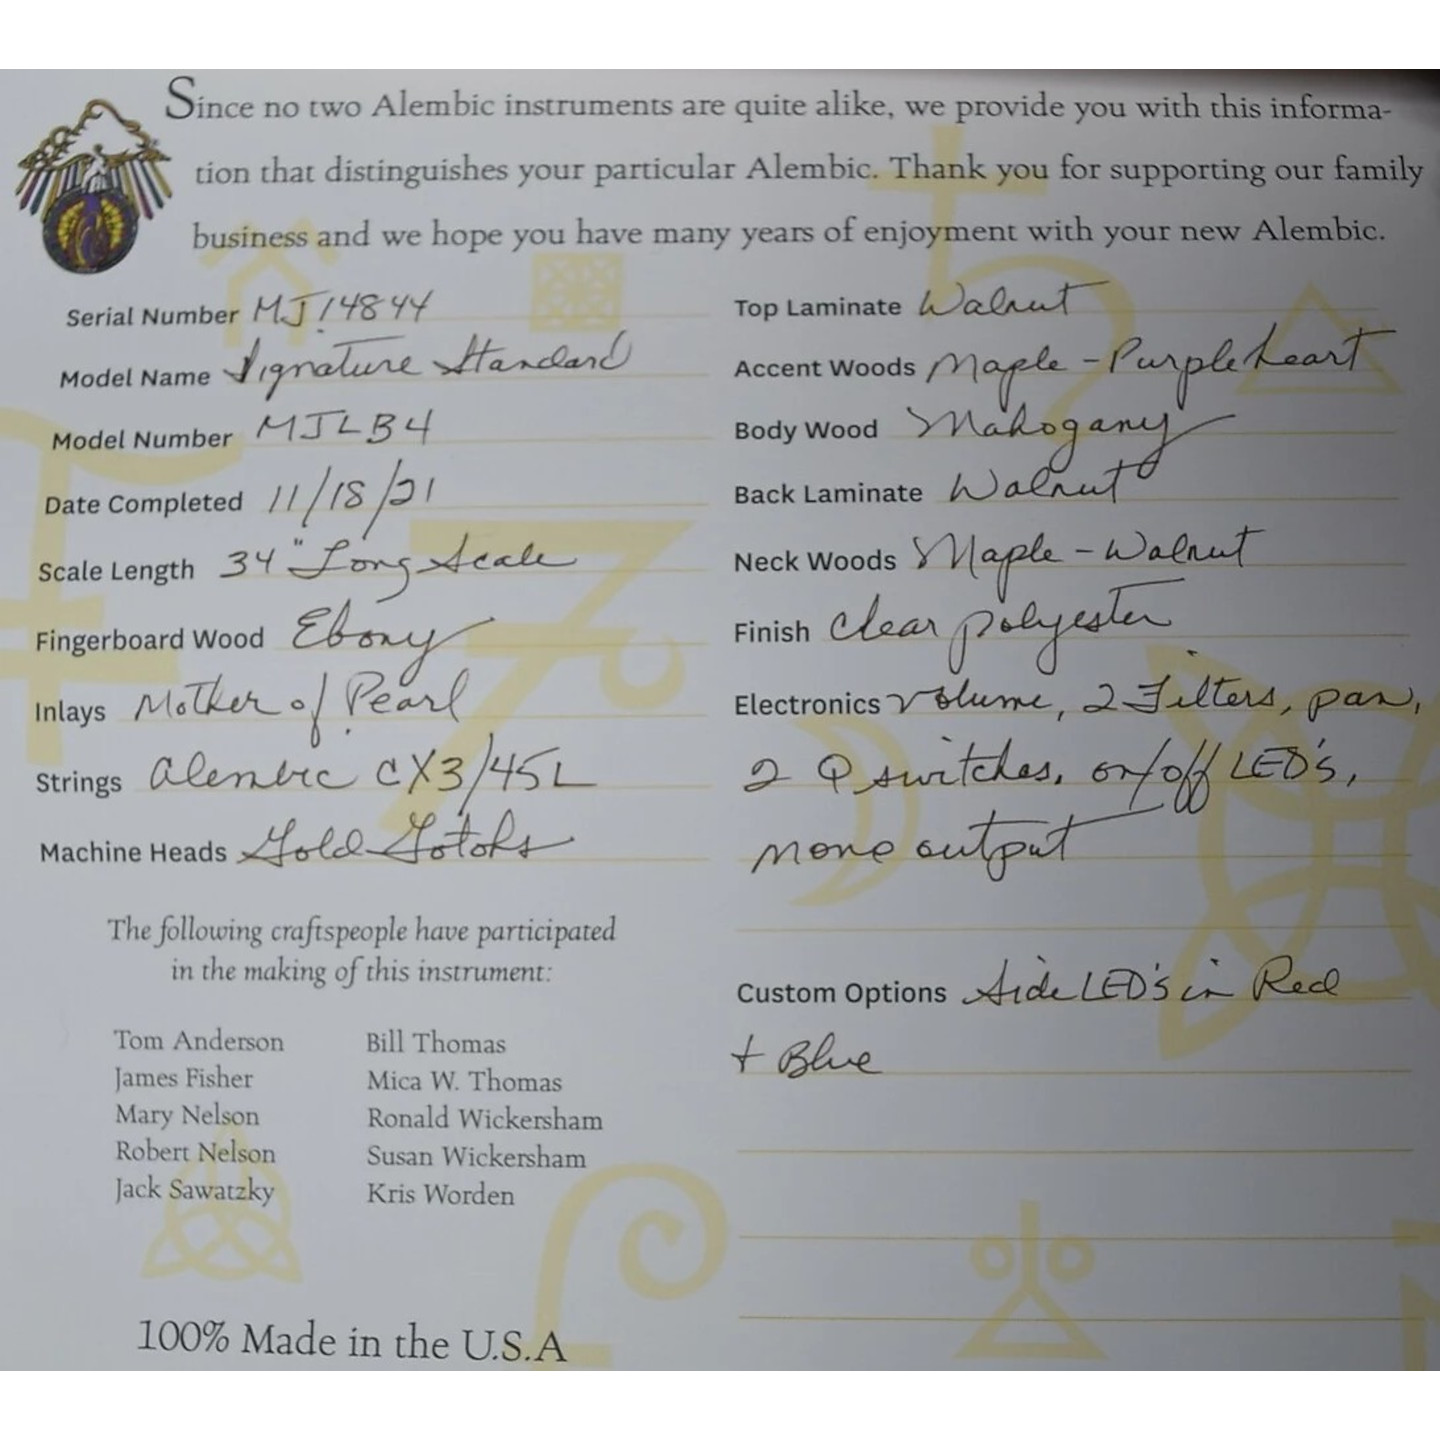 Since no two Alembic instruments are quite alike, we provide you with this informa-
tion that distinguishes your particular Alembic. Thank you for supporting our family
business and we hope you have many years of enjoyment with your new Alembic.
Serial Number MJ14844
Model Name Signature Standard
Model Number MJLB4
Date Completed 11/18/21
Scale Length 34" Long Scale
Fingerboard Wood Ebony
Inlays Mother of Pearl
Strings Alembic CX3/45L
Machine Heads Gold Gotohs
The following craftspeople have participated
in the making of this instrument:
Tom Anderson
James Fisher
Mary Nelson
Robert Nelson
Jack Sawatzky
Bill Thomas
Mica W. Thomas
Ronald Wickersham
Susan Wickersham
Kris Worden
100% Made in the U.S.A
Top Laminate Walnut
Accent Woods Maple - Purpleheart
Body Wood Mahogany
Back Laminate Walnut
Neck Woods Maple - Walnut
Finish Clear polyester
Electronics Volume, 2 Filters, pan,
2 Q switches, on/off LED's,
mono output
Custom Options Side LED's in Red
+ Blue